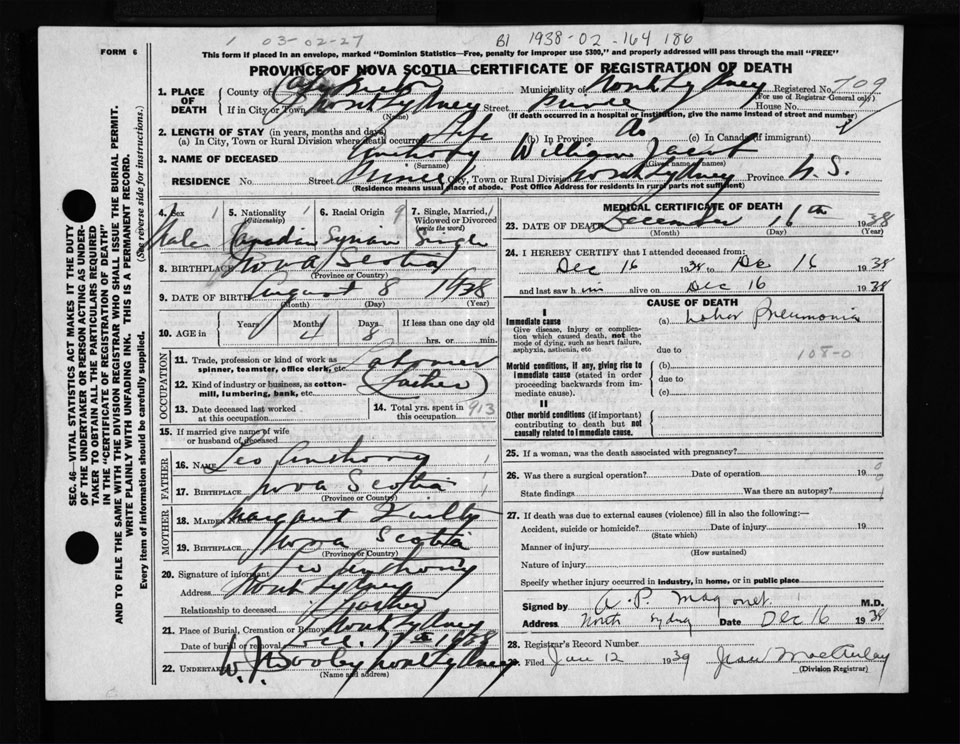 1 03-02-27 B1 1938-02-164 186
FORM 6
This form if placed in an envelope, marked "Dominion Statistics—Free, penalty for improper use $300," and properly addressed will pass through the mail "FREE"
PROVINCE OF NOVA SCOTIA—CERTIFICATE OF REGISTRATION OF DEATH
SEC. 46—VITAL STATISTICS ACT MAKES IT THE DUTY
OF THE UNDERTAKER OR PERSON ACTING AS UNDER-
TAKER TO OBTAIN ALL THE PARTICULARS REQUIRED
IN THE "CERTIFICATE OF REGISTRATION OF DEATH"
AND TO FILE THE SAME WITH THE DIVISION REGISTRAR WHO SHALL ISSUE THE BURIAL PERMIT.
WRITE PLAINLY WITH UNFADING INK. THIS IS A PERMANENT RECORD.
Every item of information should be carefully supplied. (See reverse side for instructions.)
1. PLACE OF DEATH
County of Cape Breton Municipality of North Sydney Registered No. 709
(For use of Registrar General only)
If in City or Town North Sydney Street Prince House No.
(Name) (If death occurred in a hospital or institution, give the name instead of street and number)
2. LENGTH OF STAY (in years, months and days)
(a) In City, Town or Rural Division where death occurred Life (b) In Province do (c) In Canada (if immigrant)
3. NAME OF DECEASED Anthony William Jacob
(Surname) (Given name or names)
RESIDENCE No. Street Prince City, Town or Rural Division North Sydney Province N.S.
(Residence means usual place of abode. Post Office Address for residents in rural parts not sufficient)
4. Sex 1 5. Nationality 1 6. Racial Origin 9 7. Single, Married, Widowed or Divorced (write the word) 1
Male Canadian Syrian Single
8. BIRTHPLACE Nova Scotia
(Province or Country)
9. DATE OF BIRTH August 8 1938
(Month) (Day) (Year)
10. AGE in Years Months Days If less than one day old
0 4 8 hrs. or min.
OCCUPATION
11. Trade, profession or kind of work as spinner, teamster, office clerk, etc. Labourer
12. Kind of industry or business, as cotton-mill, lumbering, bank, etc. (Father)
13. Date deceased last worked at this occupation
14. Total yrs. spent in this occupation 913
15. If married give name of wife or husband of deceased
FATHER
16. NAME Leo Anthony 1
17. BIRTHPLACE Nova Scotia 1
(Province or Country)
MOTHER
18. MAIDEN NAME Margaret
19. BIRTHPLACE Nova Scotia
(Province or Country)
20. Signature of informant Leo Anthony
Address North Sydney
Relationship to deceased Father
21. Place of Burial, Cremation or Removal North Sydney
Date of burial or removal Dec. 1938
22. UNDERTAKER W. J. Dooley North Sydney
(Name and address)
MEDICAL CERTIFICATE OF DEATH
23. DATE OF DEATH December 16th 1938
(Month) (Day) (Year)
24. I HEREBY CERTIFY that I attended deceased from:
Dec 16 1938 to Dec 16 1938
and last saw him alive on Dec 16 1938
CAUSE OF DEATH
I
Immediate cause (a) Lobar Pneumonia
Give disease, injury or complication which caused death, not the mode of dying, such as heart failure, asphyxia, asthenia, etc
due to 108-0
Morbid conditions, if any, giving rise to immediate cause (stated in order proceeding backwards from immediate cause). (b)
due to
(c)
II
Other morbid conditions (if important) contributing to death but not causally related to immediate cause.
25. If a woman, was the death associated with pregnancy?
26. Was there a surgical operation? Date of operation 19 0
State findings Was there an autopsy?
27. If death was due to external causes (violence) fill in also the following:—
Accident, suicide or homicide? Date of injury 19
(State which)
Manner of injury
(How sustained)
Nature of injury
Specify whether injury occurred in industry, in home, or in public place
Signed by A. P. M.D.
Address North Sydney Date Dec 16 1938
28. Registrar's Record Number
Filed Jan 12 1939 Jean MacAulay
(Division Registrar)